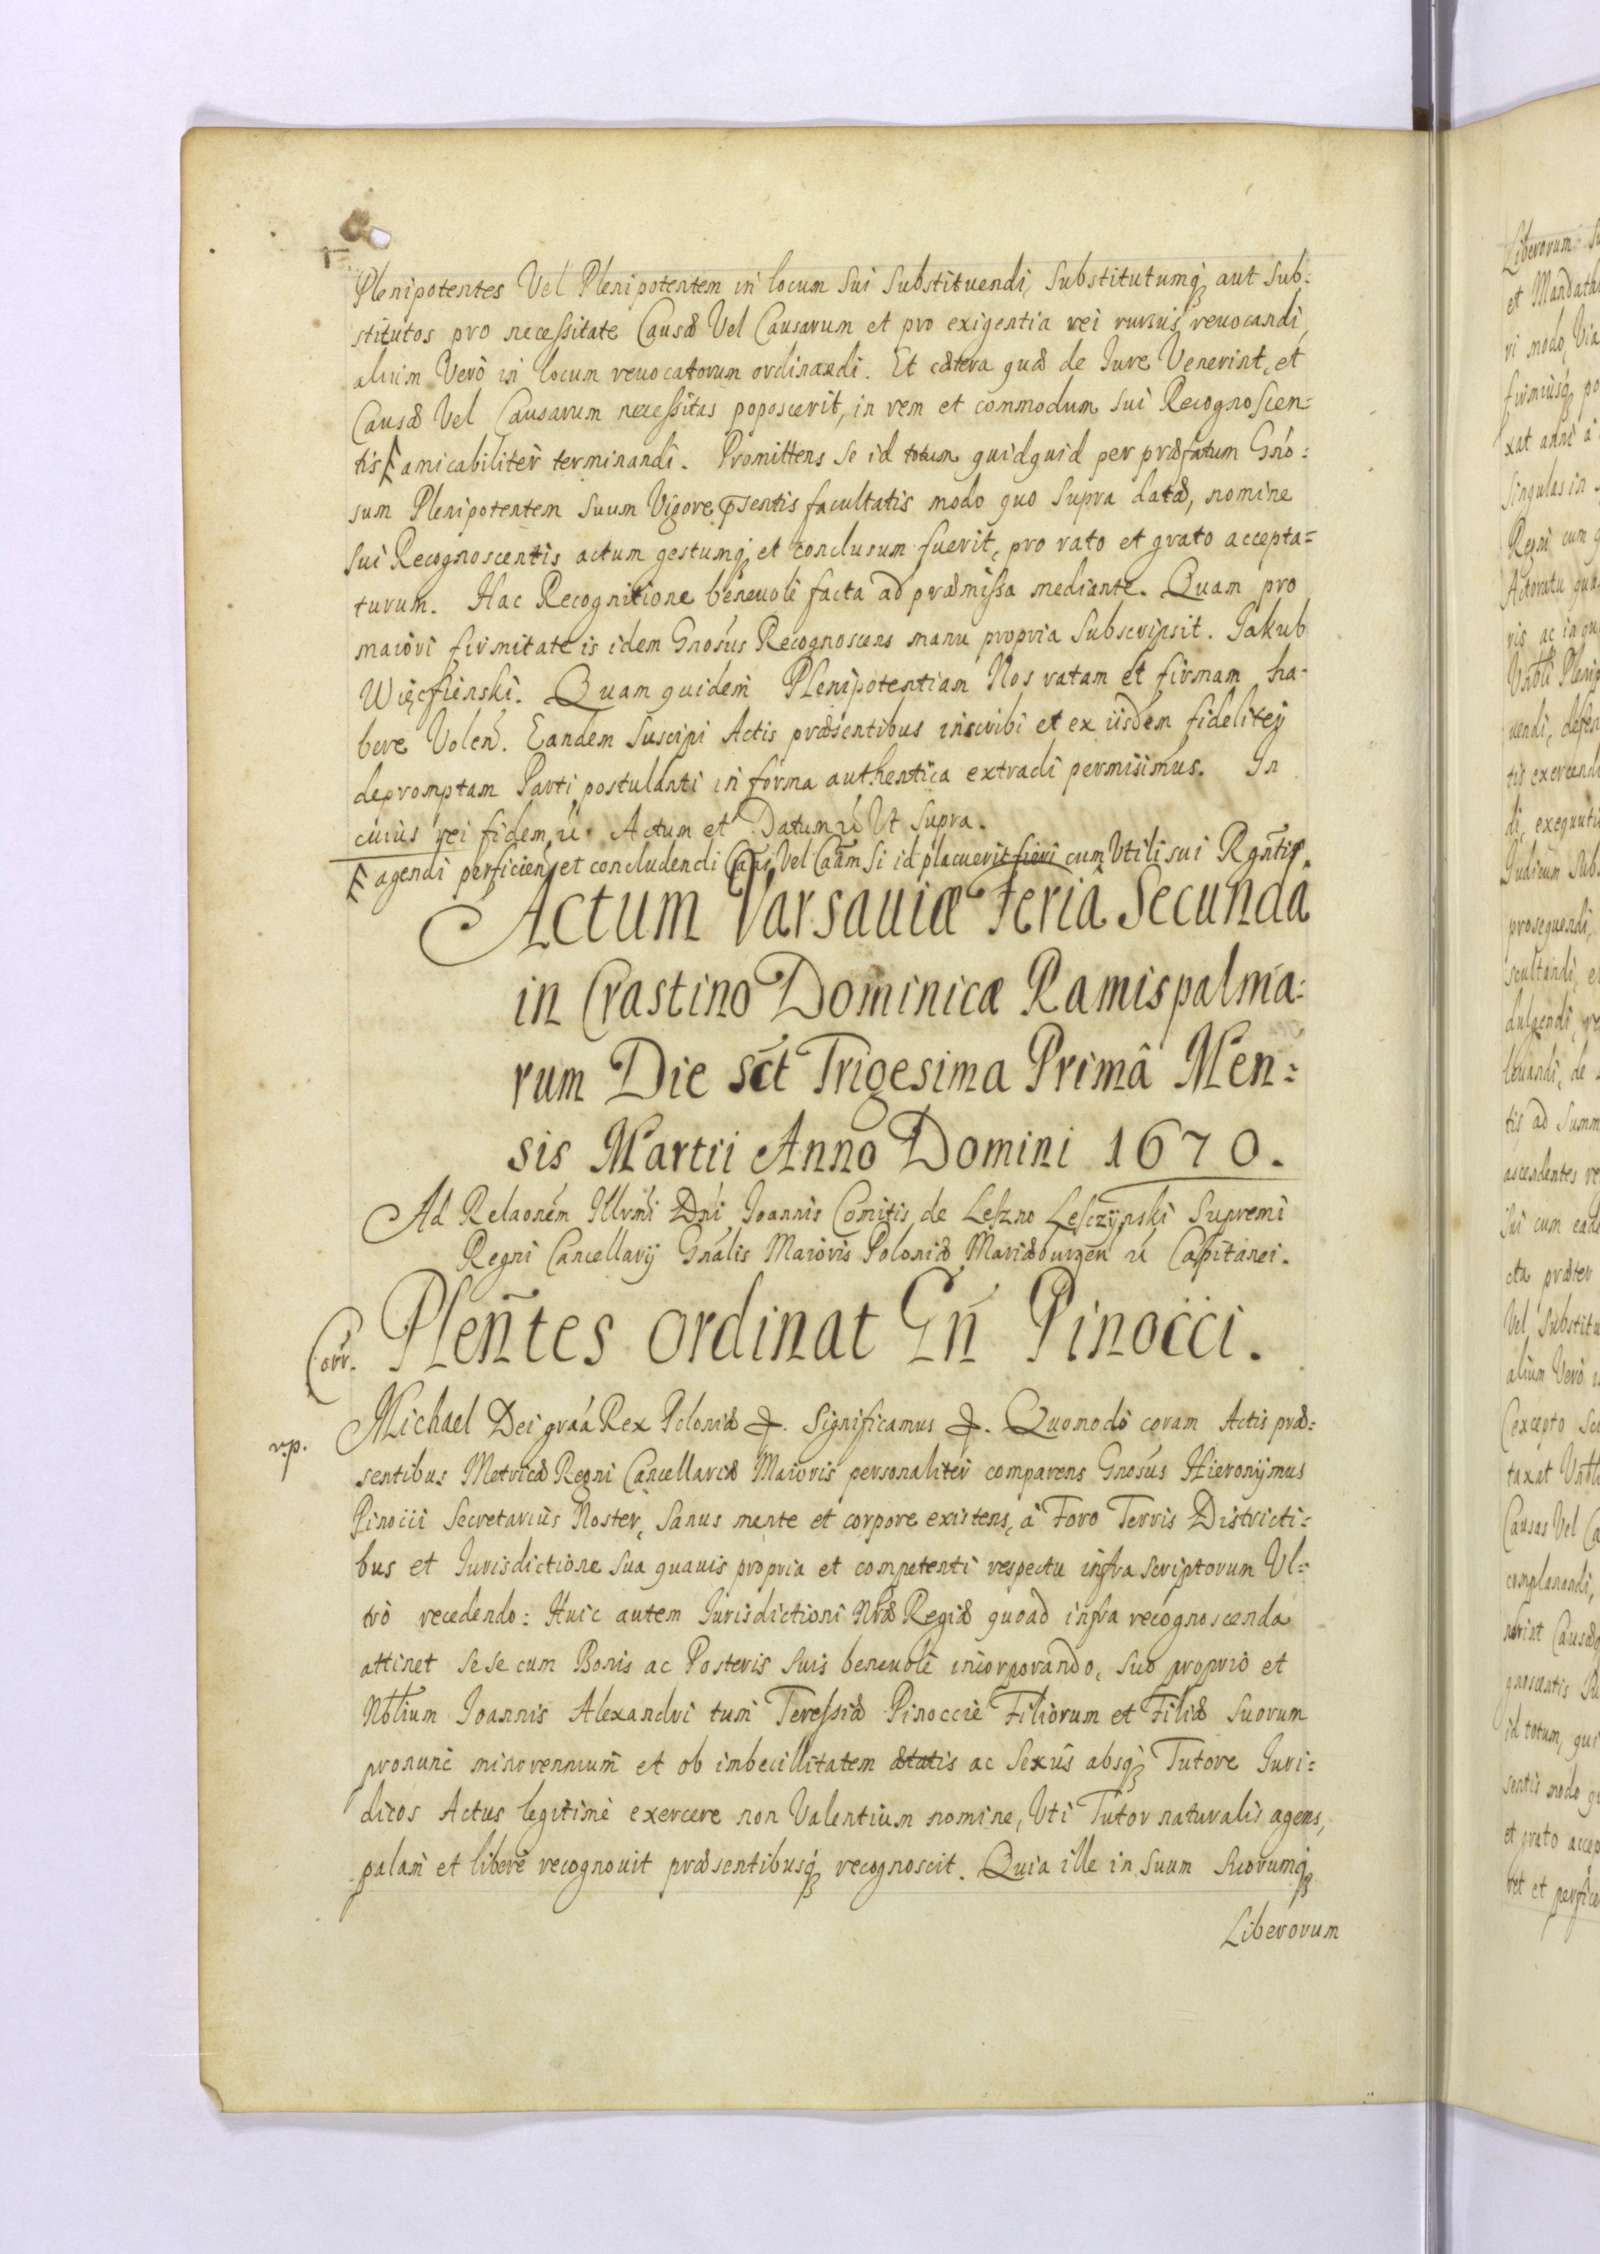 Plenipotentes Vel Plenipotentem in locum Sui Substituendi, Substitutumq3 aut Sub:
stitutos pro necessitate Causæ Vel Causarum et pro exigentia rei rursus reuocandi,
alium Verò in locum reuocatorum ordinandi. Et cætera quæ de Iure Venerint, et
Causæ Vel Causarum necessitas poposcerit, in rem et commodum Sui Recognoscen:
tis amicabiliter terminandi. Promittens Se id totum quidquid per præfatum Gnō:
sum Plenipotentem Suum Vigore pr̄sentis facultatis modo quo Supra datæ, nomine
Sui Recognoscentis actum gestumq3 et conclusum fuerit, pro rato et grato accepta=
turum. Hac Recognitione beneuolè facta ad præmissa mediante. Quam pro
maiori firmitate is idem Gnōsus Recognoscens manu propria Subscripsit. Jakub
Więcfieński. Quam quidem Plenipotentiam Nos ratam et firmam ha-
bere Volen̄. Eandem Suscipi Actis præsentibus inscribi et ex iisdem fideliter
depromptam Parti postulanti in forma authentica extradi permisimus. In
cuius rei fidem &. Actum et Datum & Ut Supra.
agendi perficien̄ et concludendi Cām Vel Cām Si id placuerit fieri cum Utili sui Rgn̄tis.
Actum Varsauiæ Feriâ Secundâ
in Crastino Dominicæ Ramispalma:
rum Die sc̄t Trigesima Primâ Men:
sis Martii Anno Domini 1670.
Ad Relaonēm Illvmi Dn̄i Ioannis Comitis de Leszno Lesczÿnski Supremi
Regni Cancellarij Gnālis Maioris Poloniæ Mariæburgēn & Capitanei.
Corr. Plen̄tes ordinat Gn̄ Pinocci.
Michael Dei graā Rex Poloniæ &. Significamus &. Quomodò coram Actis præ:
r.p.
sentibus Metricæ Regni Cancellariæ Maioris personaliter comparens Gnōsus Hieronÿmus
Pinocii Secretarius Noster, Sanus mente et corpore existens, à Foro Terris Districti:
bus et Iurisdictione Sua quauis propria et competenti respectu infra scriptorum Ul:
trò recedendo: Huic autem Iurisdictioni Nrǣ Regiæ quoad infra recognoscenda
attinet Sese cum Bonis ac Posteris Suis beneuolè incorporando, Suo proprio et
Nbłium Ioannis Alexandri tum Teressiæ Pinoccie Filiorum et Filiæ Suorum
pronunc minorennium et ob imbecillitatem ætatis ac Sexûs absq3 Tutore Iuri:
dicos Actus legitimè exercere non Valentium nomine, Uti Tutor naturalis agens,
palam et liberè recognouit præsentibusq3 recognoscit. Quia ille in Suum Suorumq3
Liberorum